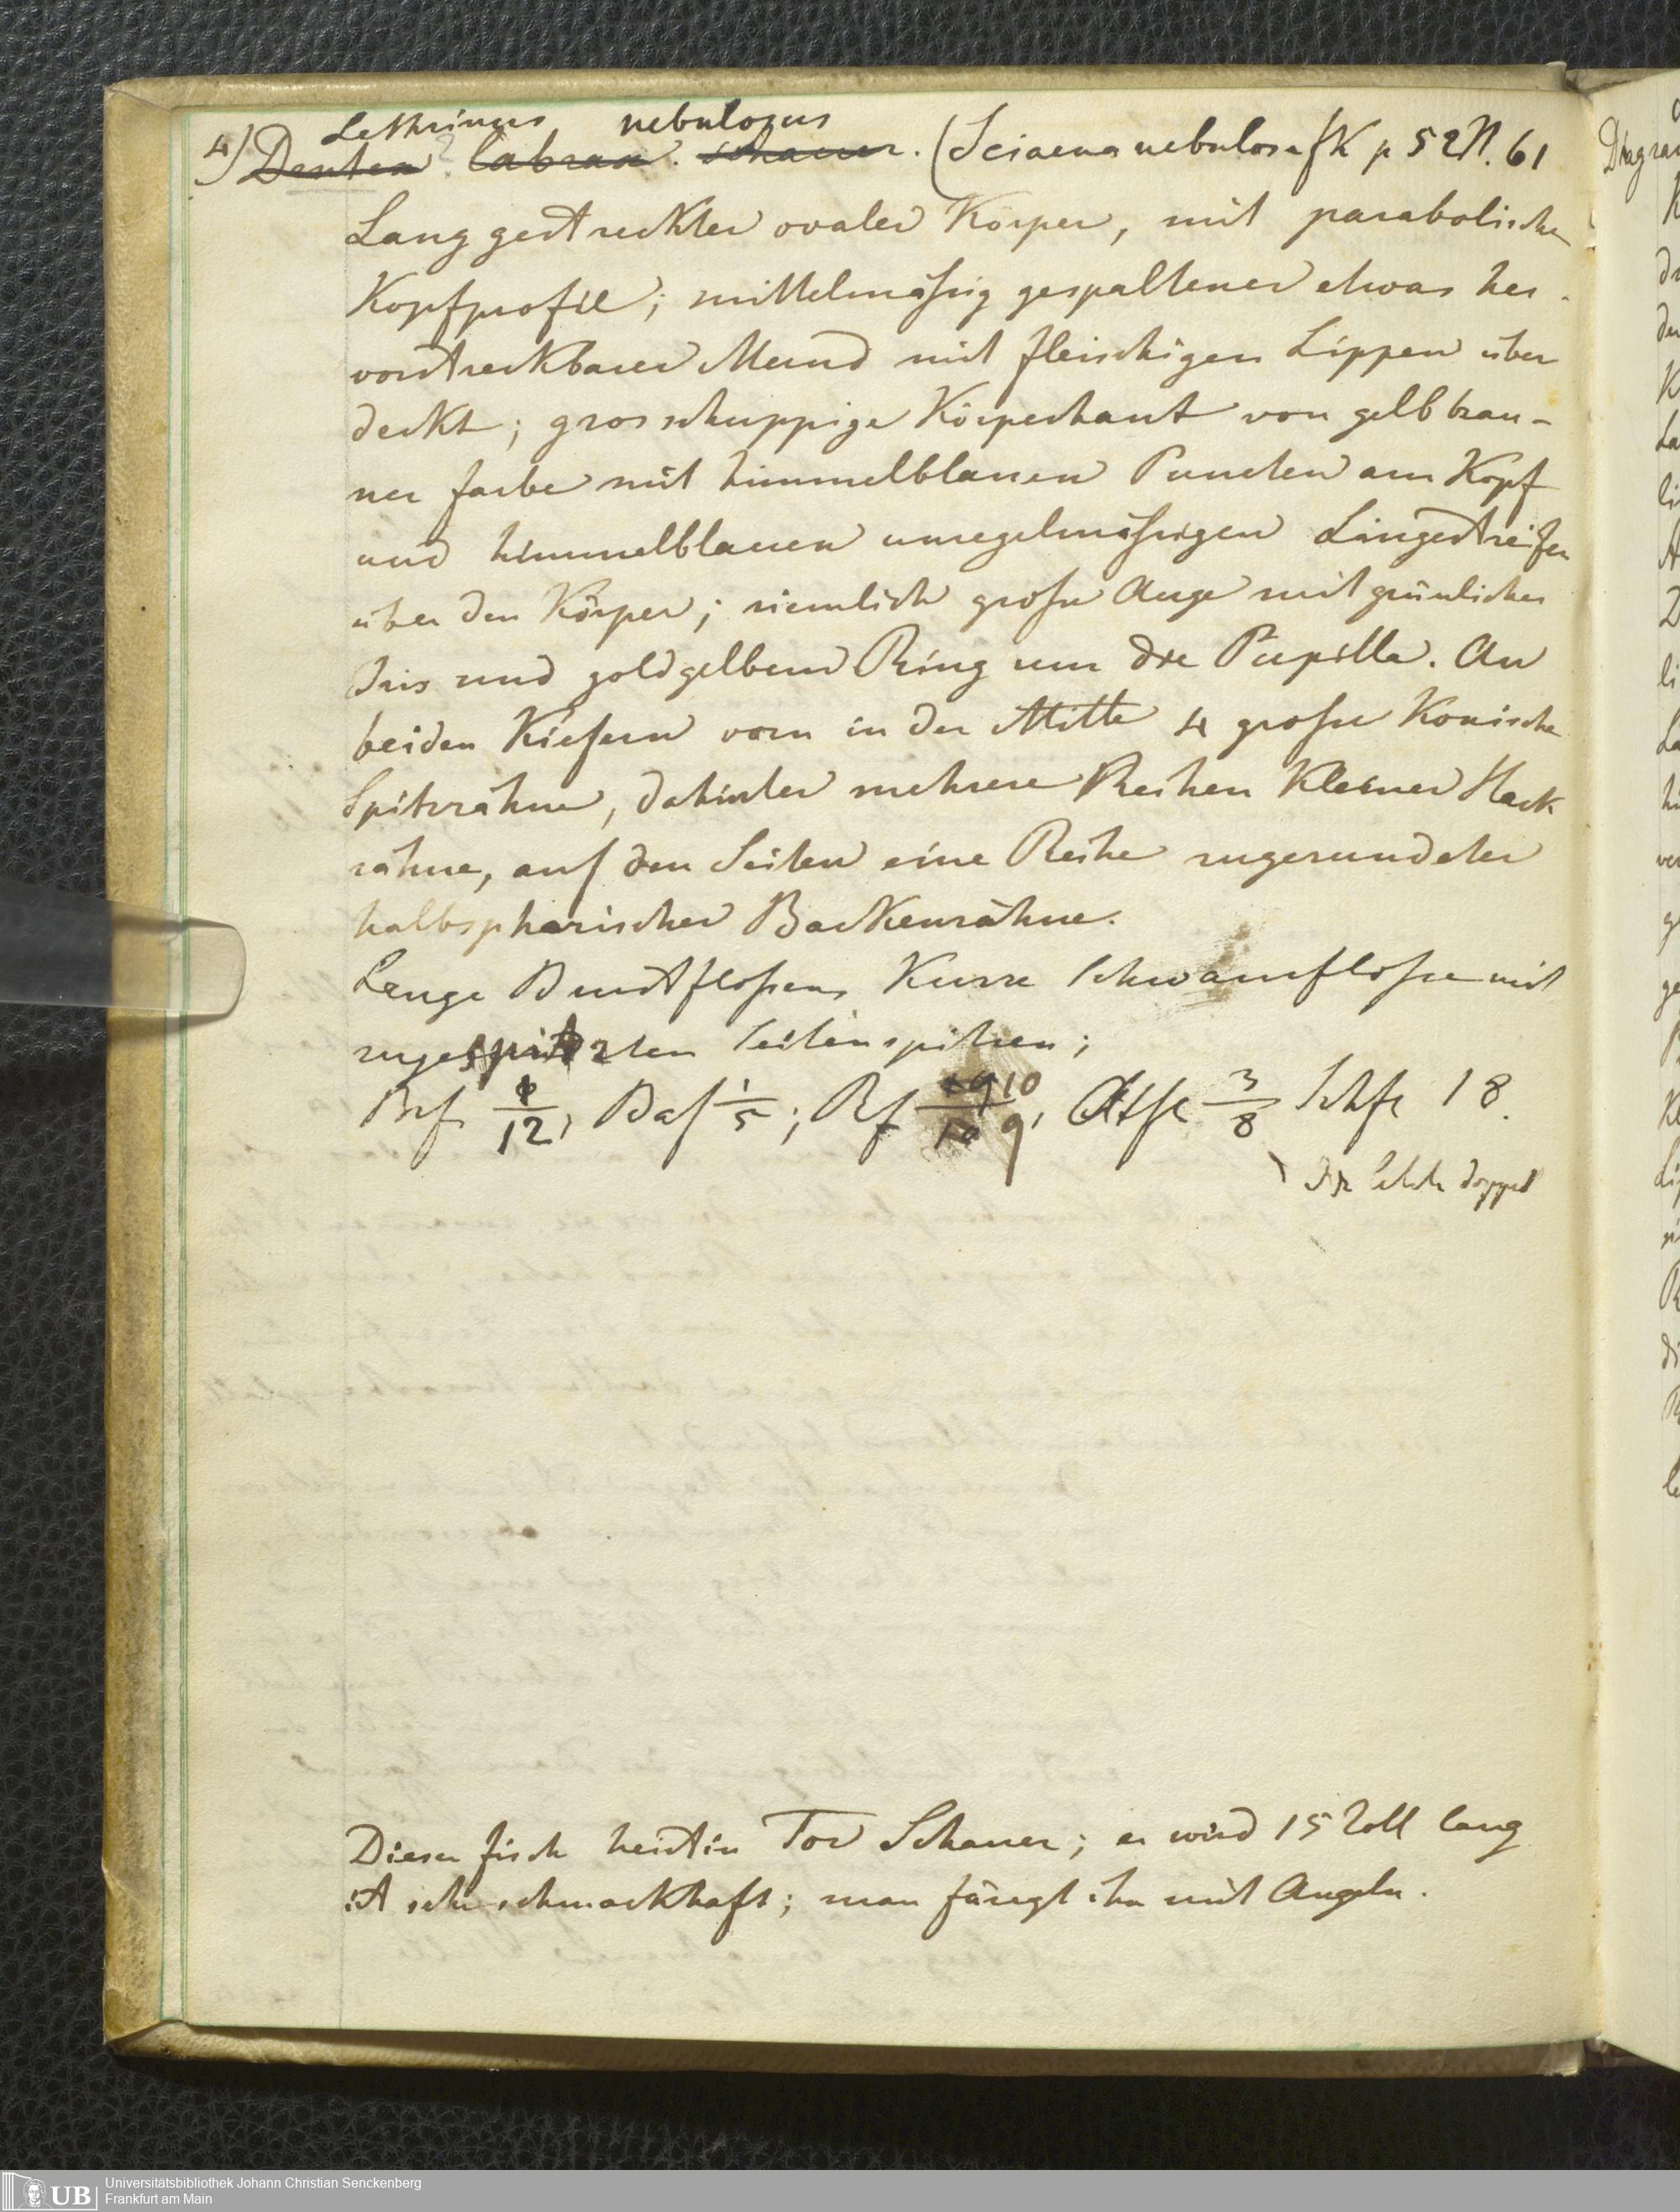 Lethrinus nebulosus
4) Dentex? labrax. schauer. (Sciaena nebulosa FK p 52 N. 61
Lang gestreckter ovaler Körper, mit parabolischen
Kopfprofil; mittelmäßig gespaltener etwas her-
vorstreckbarer Mund mit fleischigen Lippen über
deckt; grosschuppige Körperhaut von gelbbrau-
ner farbe mit himmelblauen Puncten am Kopf
und himmelblauen unregelmäßigen Längestreifen
über den Körper; ziemlich große Auge mit grünlicher
Iris und goldgelbem Ring um die Pupille. An
beiden Kiefern vorn in der Mitte 4 große Konische
Spitzzähne, dahinter mehrere Reihen Kleiner Hack
zähne, auf den Seiten eine Reihe zugerundeter
halbspharischer Backenzähne.
Lange Brustfloßen, Kurze Schwanzfloße mit
zugespitzten Seitenspitzen;
Brf 12, Baf 1/5; Rf 10/9, Afte 3/8 Schfe 18.
die letzte doppelt
Dieser fisch heist in Tor Schauer; er wird 15 Zoll lang
ist sehr schmackhaft; man fängt ihn mit Angeln.
Diagra
UB
Universitätsbibliothek Johann Christian Senckenberg
Frankfurt am Main